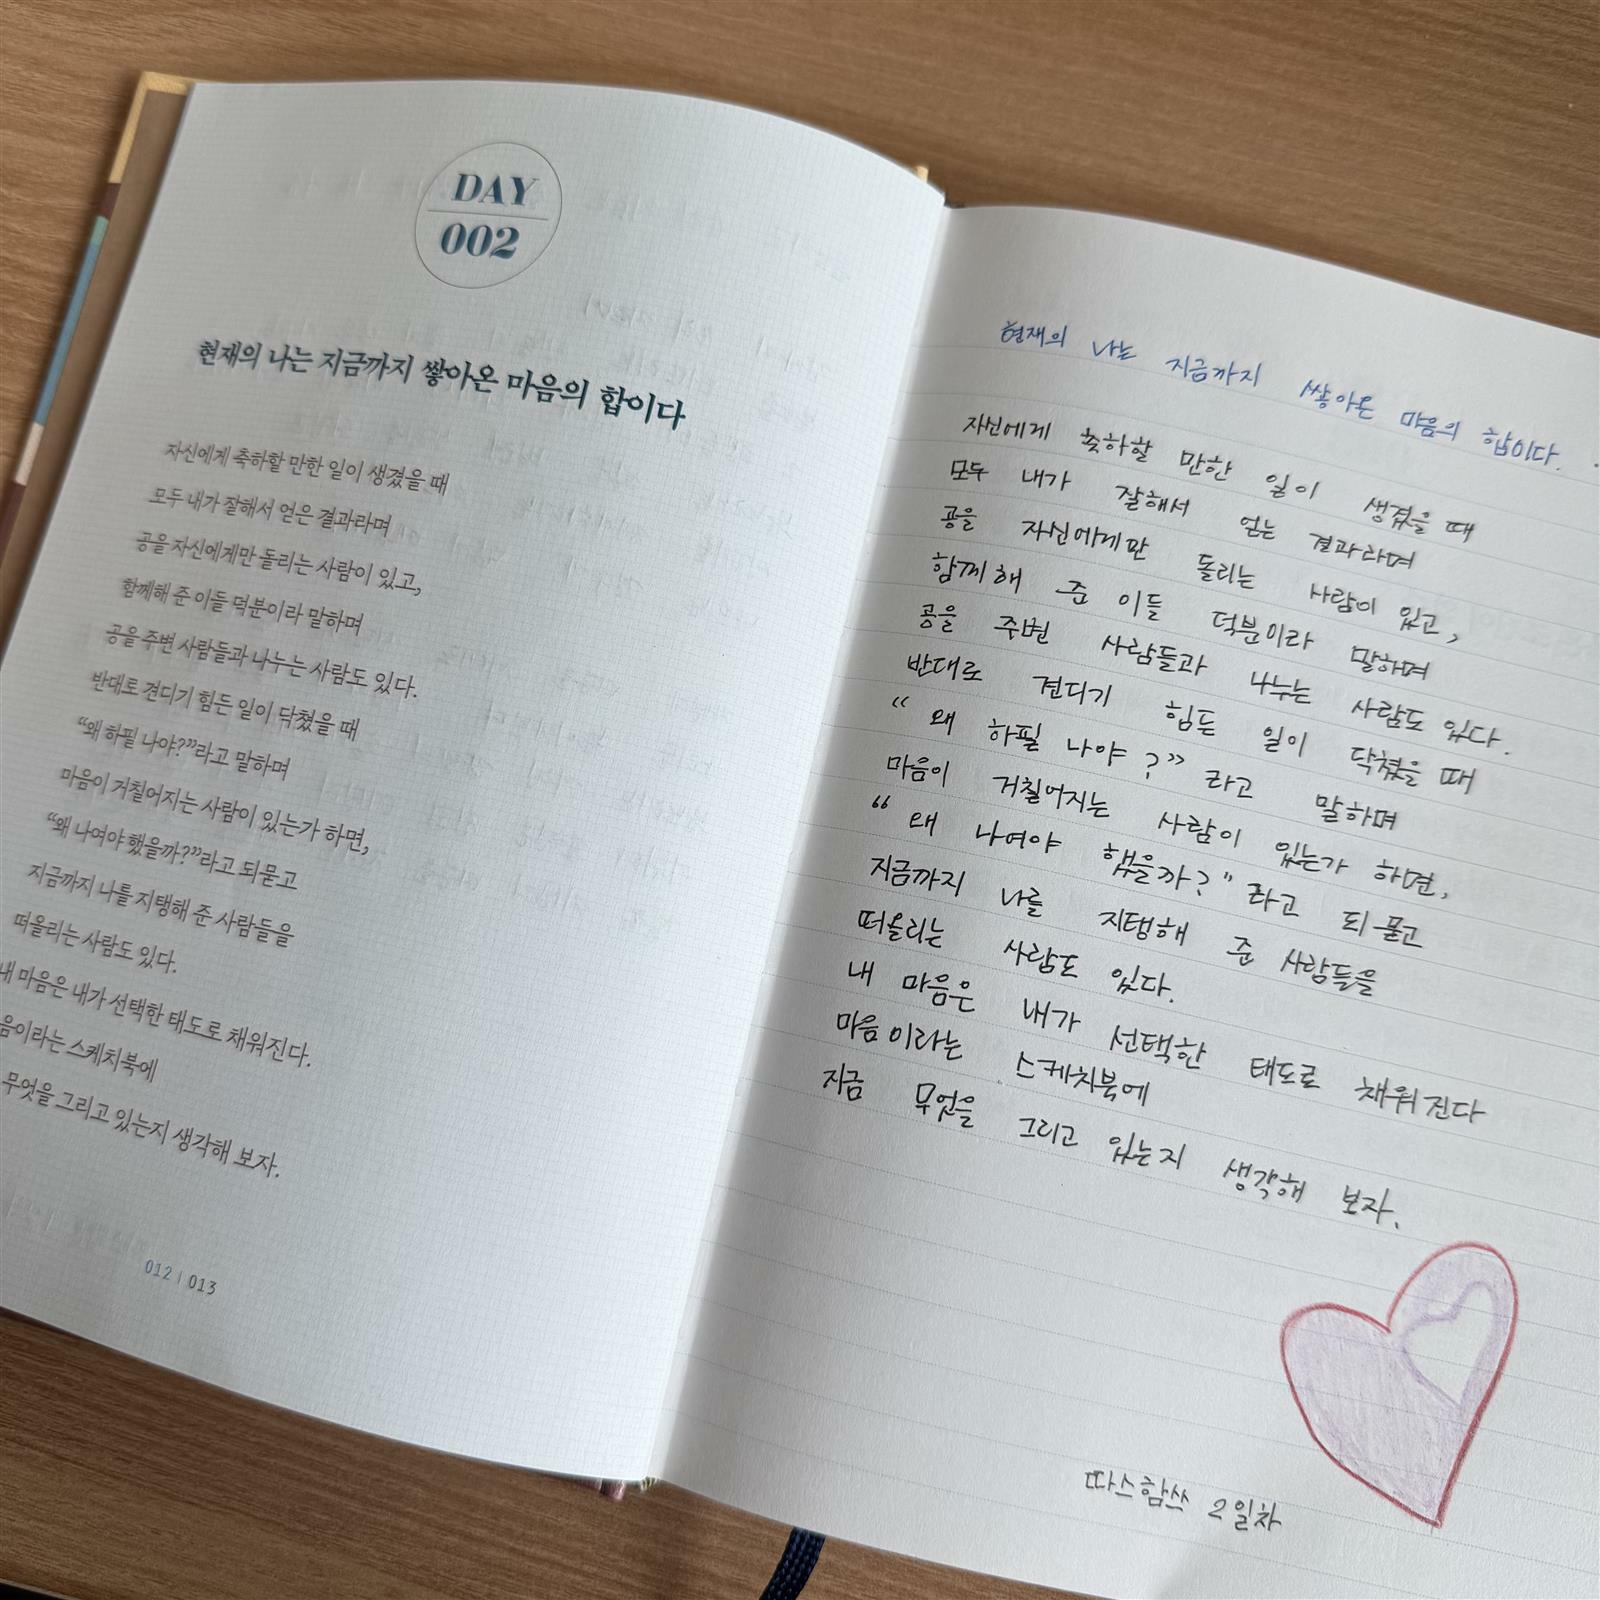 DAY
002
현재의 나는 지금까지 쌓아온 마음의 합이다
자신에게 축하할 만한 일이 생겼을 때
모두 내가 잘해서 얻은 결과라며
공을 자신에게만 돌리는 사람이 있고,
함께해 준 이들 덕분이라 말하며
공을 주변 사람들과 나누는 사람도 있다.
반대로 견디기 힘든 일이 닥쳤을 때
“왜 하필 나야?”라고 말하며
마음이 거칠어지는 사람이 있는가 하면,
“왜 나여야 했을까?”라고 되묻고
지금까지 나를 지탱해 준 사람들을
떠올리는 사람도 있다.
내 마음은 내가 선택한 태도로 채워진다.
음이라는 스케치북에
무엇을 그리고 있는지 생각해 보자.
012 | 013
현재의 나는 지금까지 쌓아온 마음의 합이다.
자신에게 축하할 만한 일이 생겼을 때
모두 내가 잘해서 얻는 결과라며
공을 자신에게만 돌리는 사람이 있고,
함께해 준 이들 덕분이라 말하며
공을 주변 사람들과 나누는 사람도 있다.
반대로 견디기 힘든 일이 닥쳤을 때
“왜 하필 나야?” 라고 말하며
마음이 거칠어지는 사람이 있는가 하면,
“왜 나여야 했을까?” 라고 되물고
지금까지 나를 지탱해 준 사람들을
떠올리는 사람도 있다.
내 마음은 내가 선택한 태도로 채워진다
마음이라는 스케치북에
지금 무엇을 그리고 있는지 생각해 보자.
따스함쓰 2일차